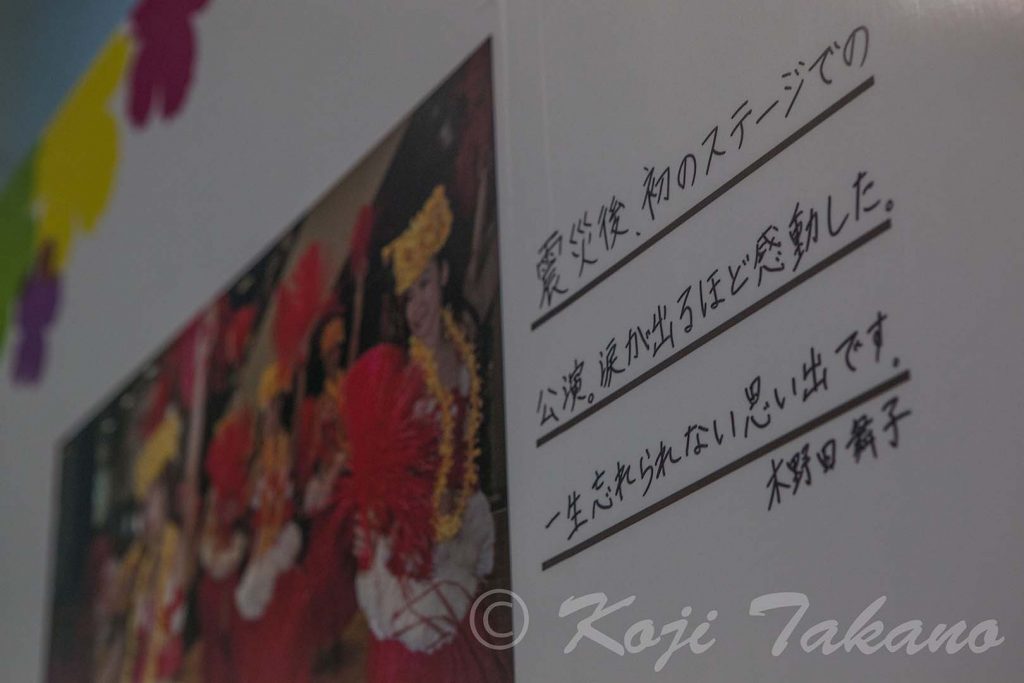 震災後、初のステージでの
公演。涙が出るほど感動した。
一生忘れられない思い出です。
木野田舞子
© Koji Takano